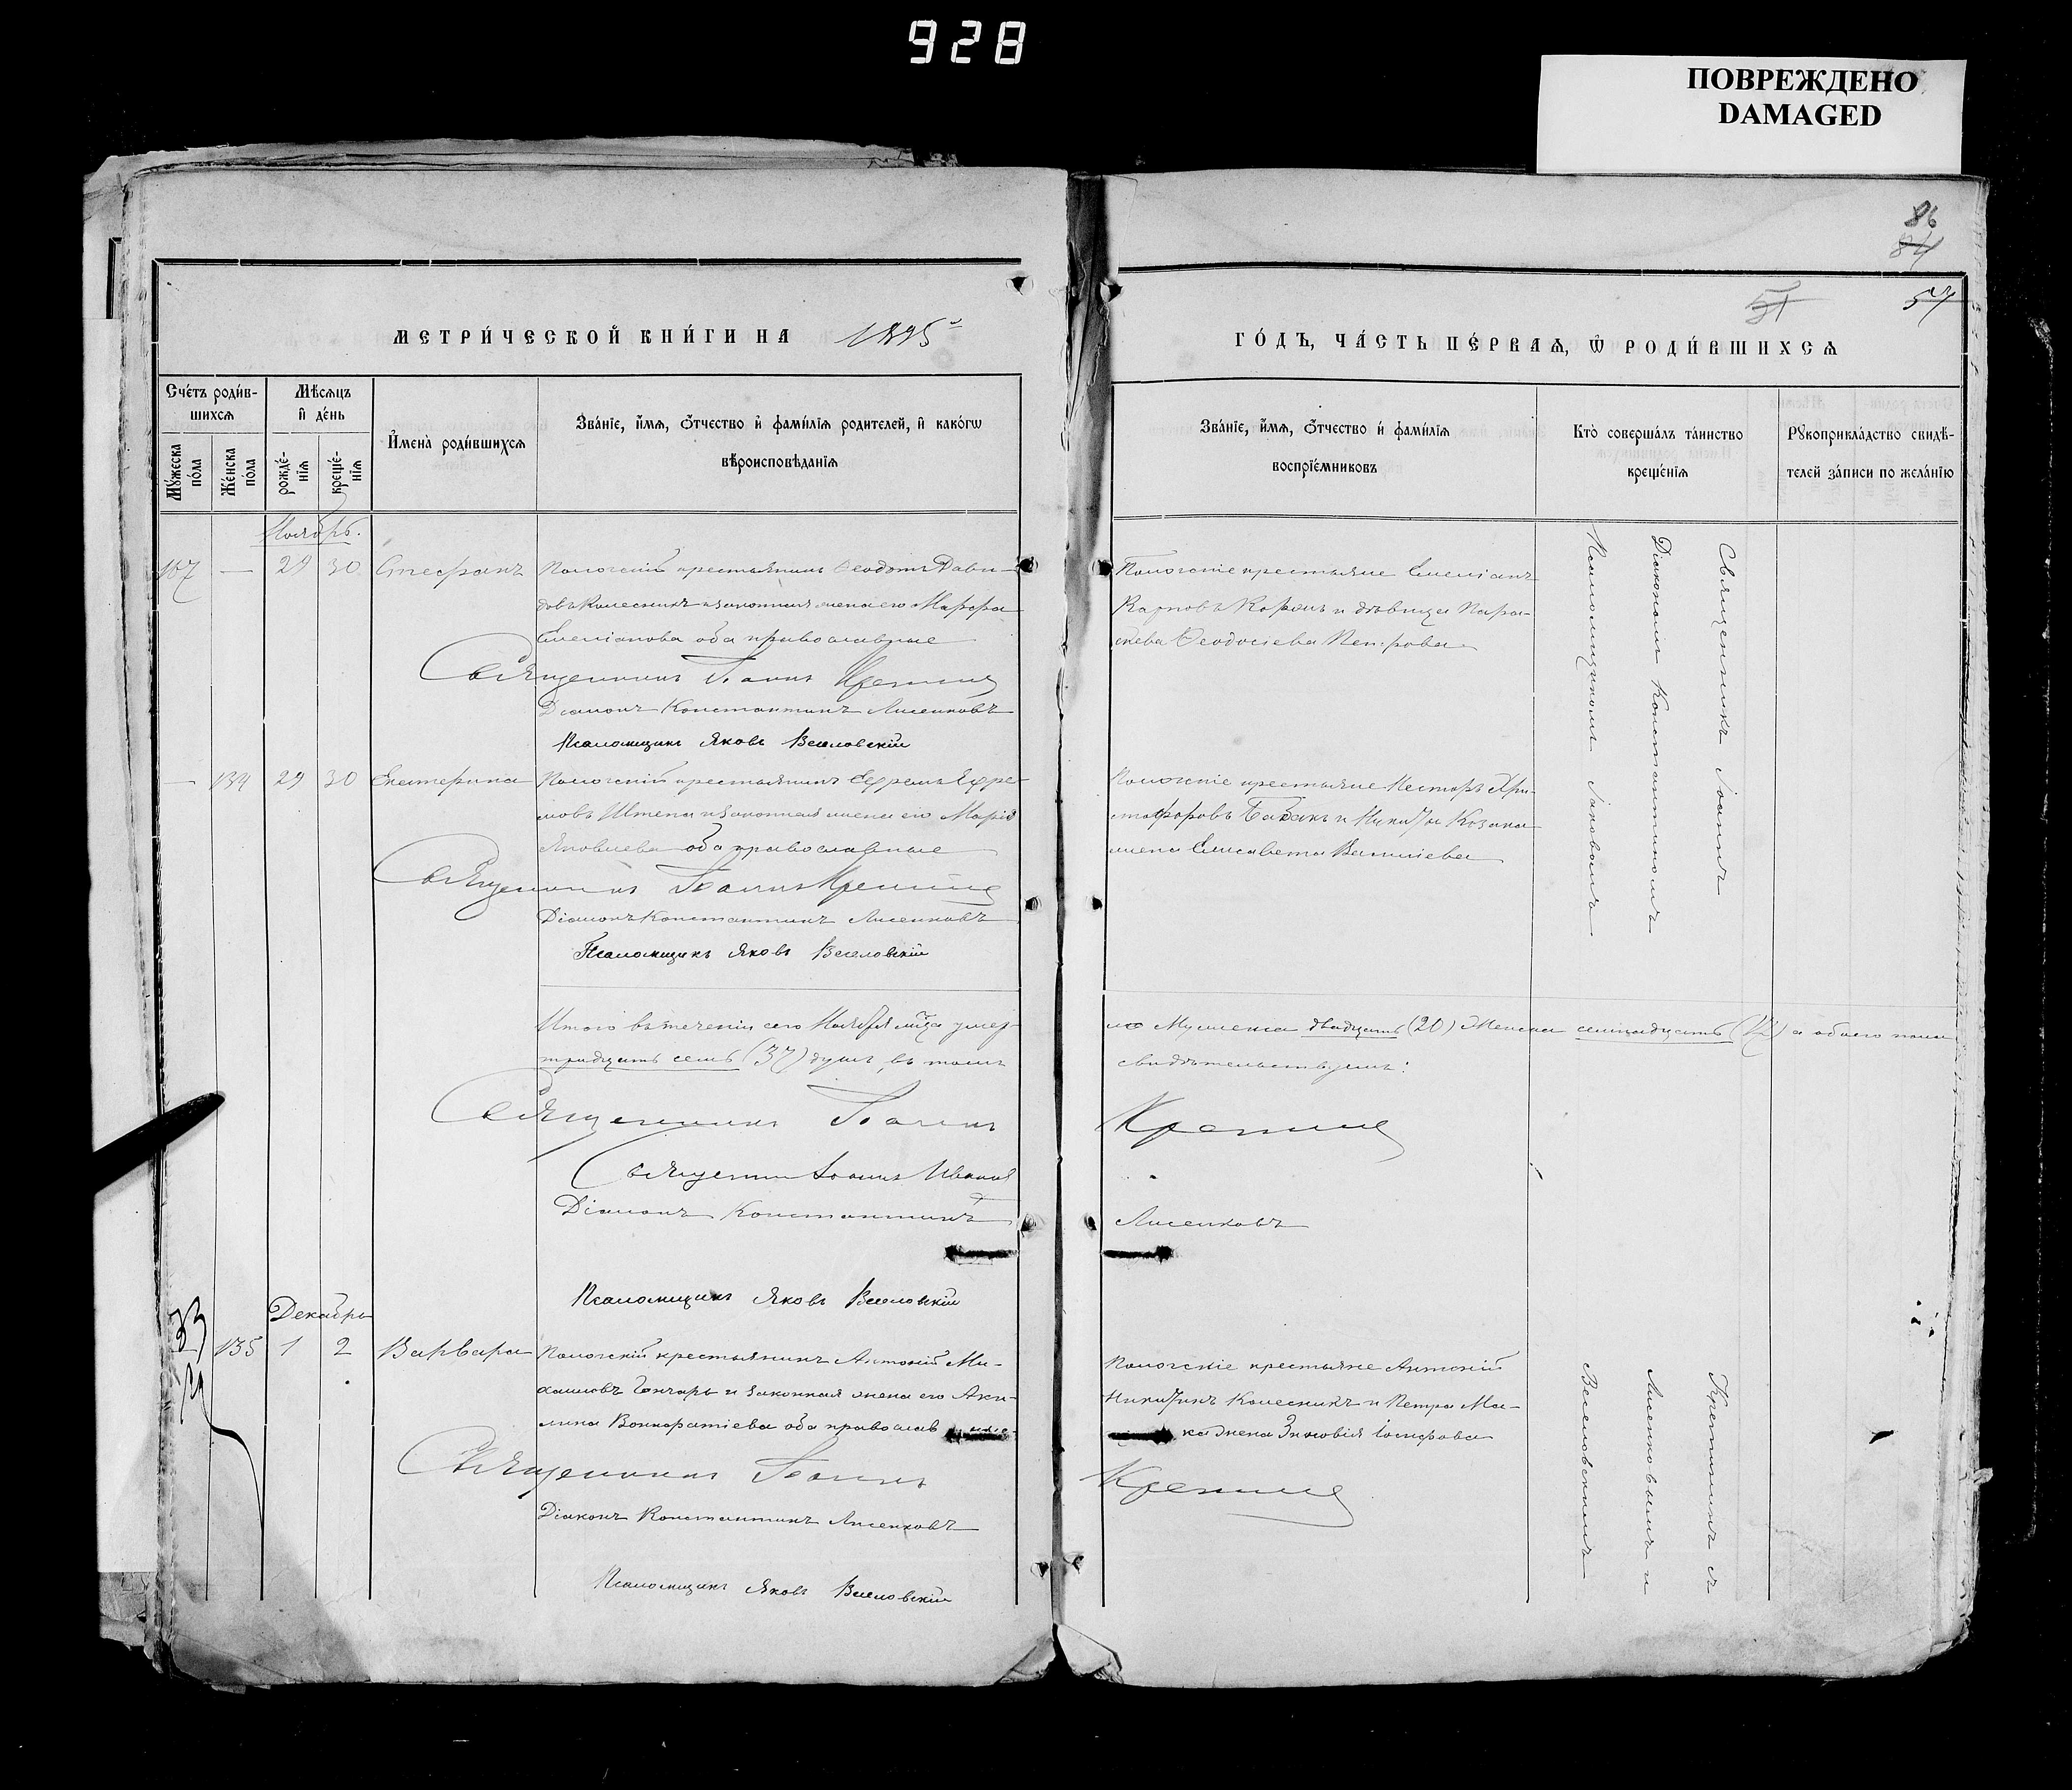 928
ПОВРЕЖДЕНО
DAMAGED
86
84
51
57
МЕТРИ́ЧЕСКОЙ КНИ́ГИ НА 1895
ГО́ДЪ, ЧА́СТЬ ПЕ́РВАѦ, Ѡ РОДИ́ВШИХСѦ
Сче́тъ роди́в-
шихсѧ
Мѣ́сѧцъ
и҆ де́нь
Мꙋ́жеска по́ла
Же́нска по́ла
рожде́-
нїѧ
креще́-
нїѧ
И҆мена̀ роди́вшихсѧ
Зва́нїе, и҆́мѧ, ѻ҆́тчество и҆ фами́лїѧ родителей, и҆ како́гѡ
вѣроисповѣ́данїѧ
Зва́нїе, и҆́мѧ, ѻ҆́тчество и҆ фами́лїѧ
воспрїе́мниковъ
Кто̀ соверша́лъ та́инство
креще́нїѧ
Рꙋкоприкла́дство свидѣ́-
телей за́писи по жела́нїю
Ноябрь.
107 — 29 30 Стефанъ
Пологскій крестьянинъ Ѳеодотъ Дави-
довъ Колесникъ и законная жена его Марфа
Емеліанова оба православные
Священникъ Іоаннъ
Діаконъ Константинъ Лисенковъ
Псаломщикъ Яковъ Веселовскій
Пологскіе крестьяне Емеліанъ
Карповъ и дѣвица Пара-
скева Ѳеодосіева Петрова
— 134 29 30 Екатерина
Пологскій крестьянинъ Ефремъ Ефре-
мовъ Штепа и законная жена его Марія
Яковлева оба православные
Священникъ Іоаннъ
Діаконъ Константинъ Лисенковъ
Псаломщикъ Яковъ Веселовскій
Пологскіе крестьяне Несторъ Хри-
стофоровъ Бабакъ и Никиты Козака
жена Елисавета Василіева
Священникъ Іоаннъ
Діакономъ Константиномъ
Псаломщикомъ Іаковомъ
Итого въ теченіи сего Ноября м-ца
тридцать семь (37) душъ, въ томъ
Мужеска двадцать (20) Женска семнадцать (17) а обоего пола
свидѣтельствуемъ:
Священникъ Іоаннъ
Священникъ Іоаннъ
Діаконъ Константинъ Лисенковъ
Псаломщикъ Яковъ Веселовскій
Декабрь
135 1 2 Варвара
Пологскій крестьянинъ Антоній Ми-
хаиловъ Гончаръ и законная жена его Аки-
лина оба православ
Священникъ Іоаннъ
Діаконъ Константинъ Лисенковъ
Псаломщикъ Яковъ Веселовскій
Пологскіе крестьяне Антоній
Никитинъ Колесникъ и Петра Ма-
ка жена Зиновія Іосифова
съ
Лисенковымъ и
Веселовскимъ